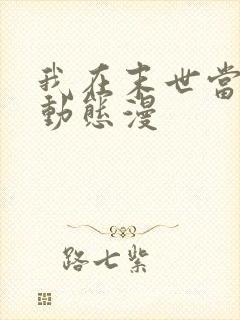 我在末世當
動態漫
路七紫